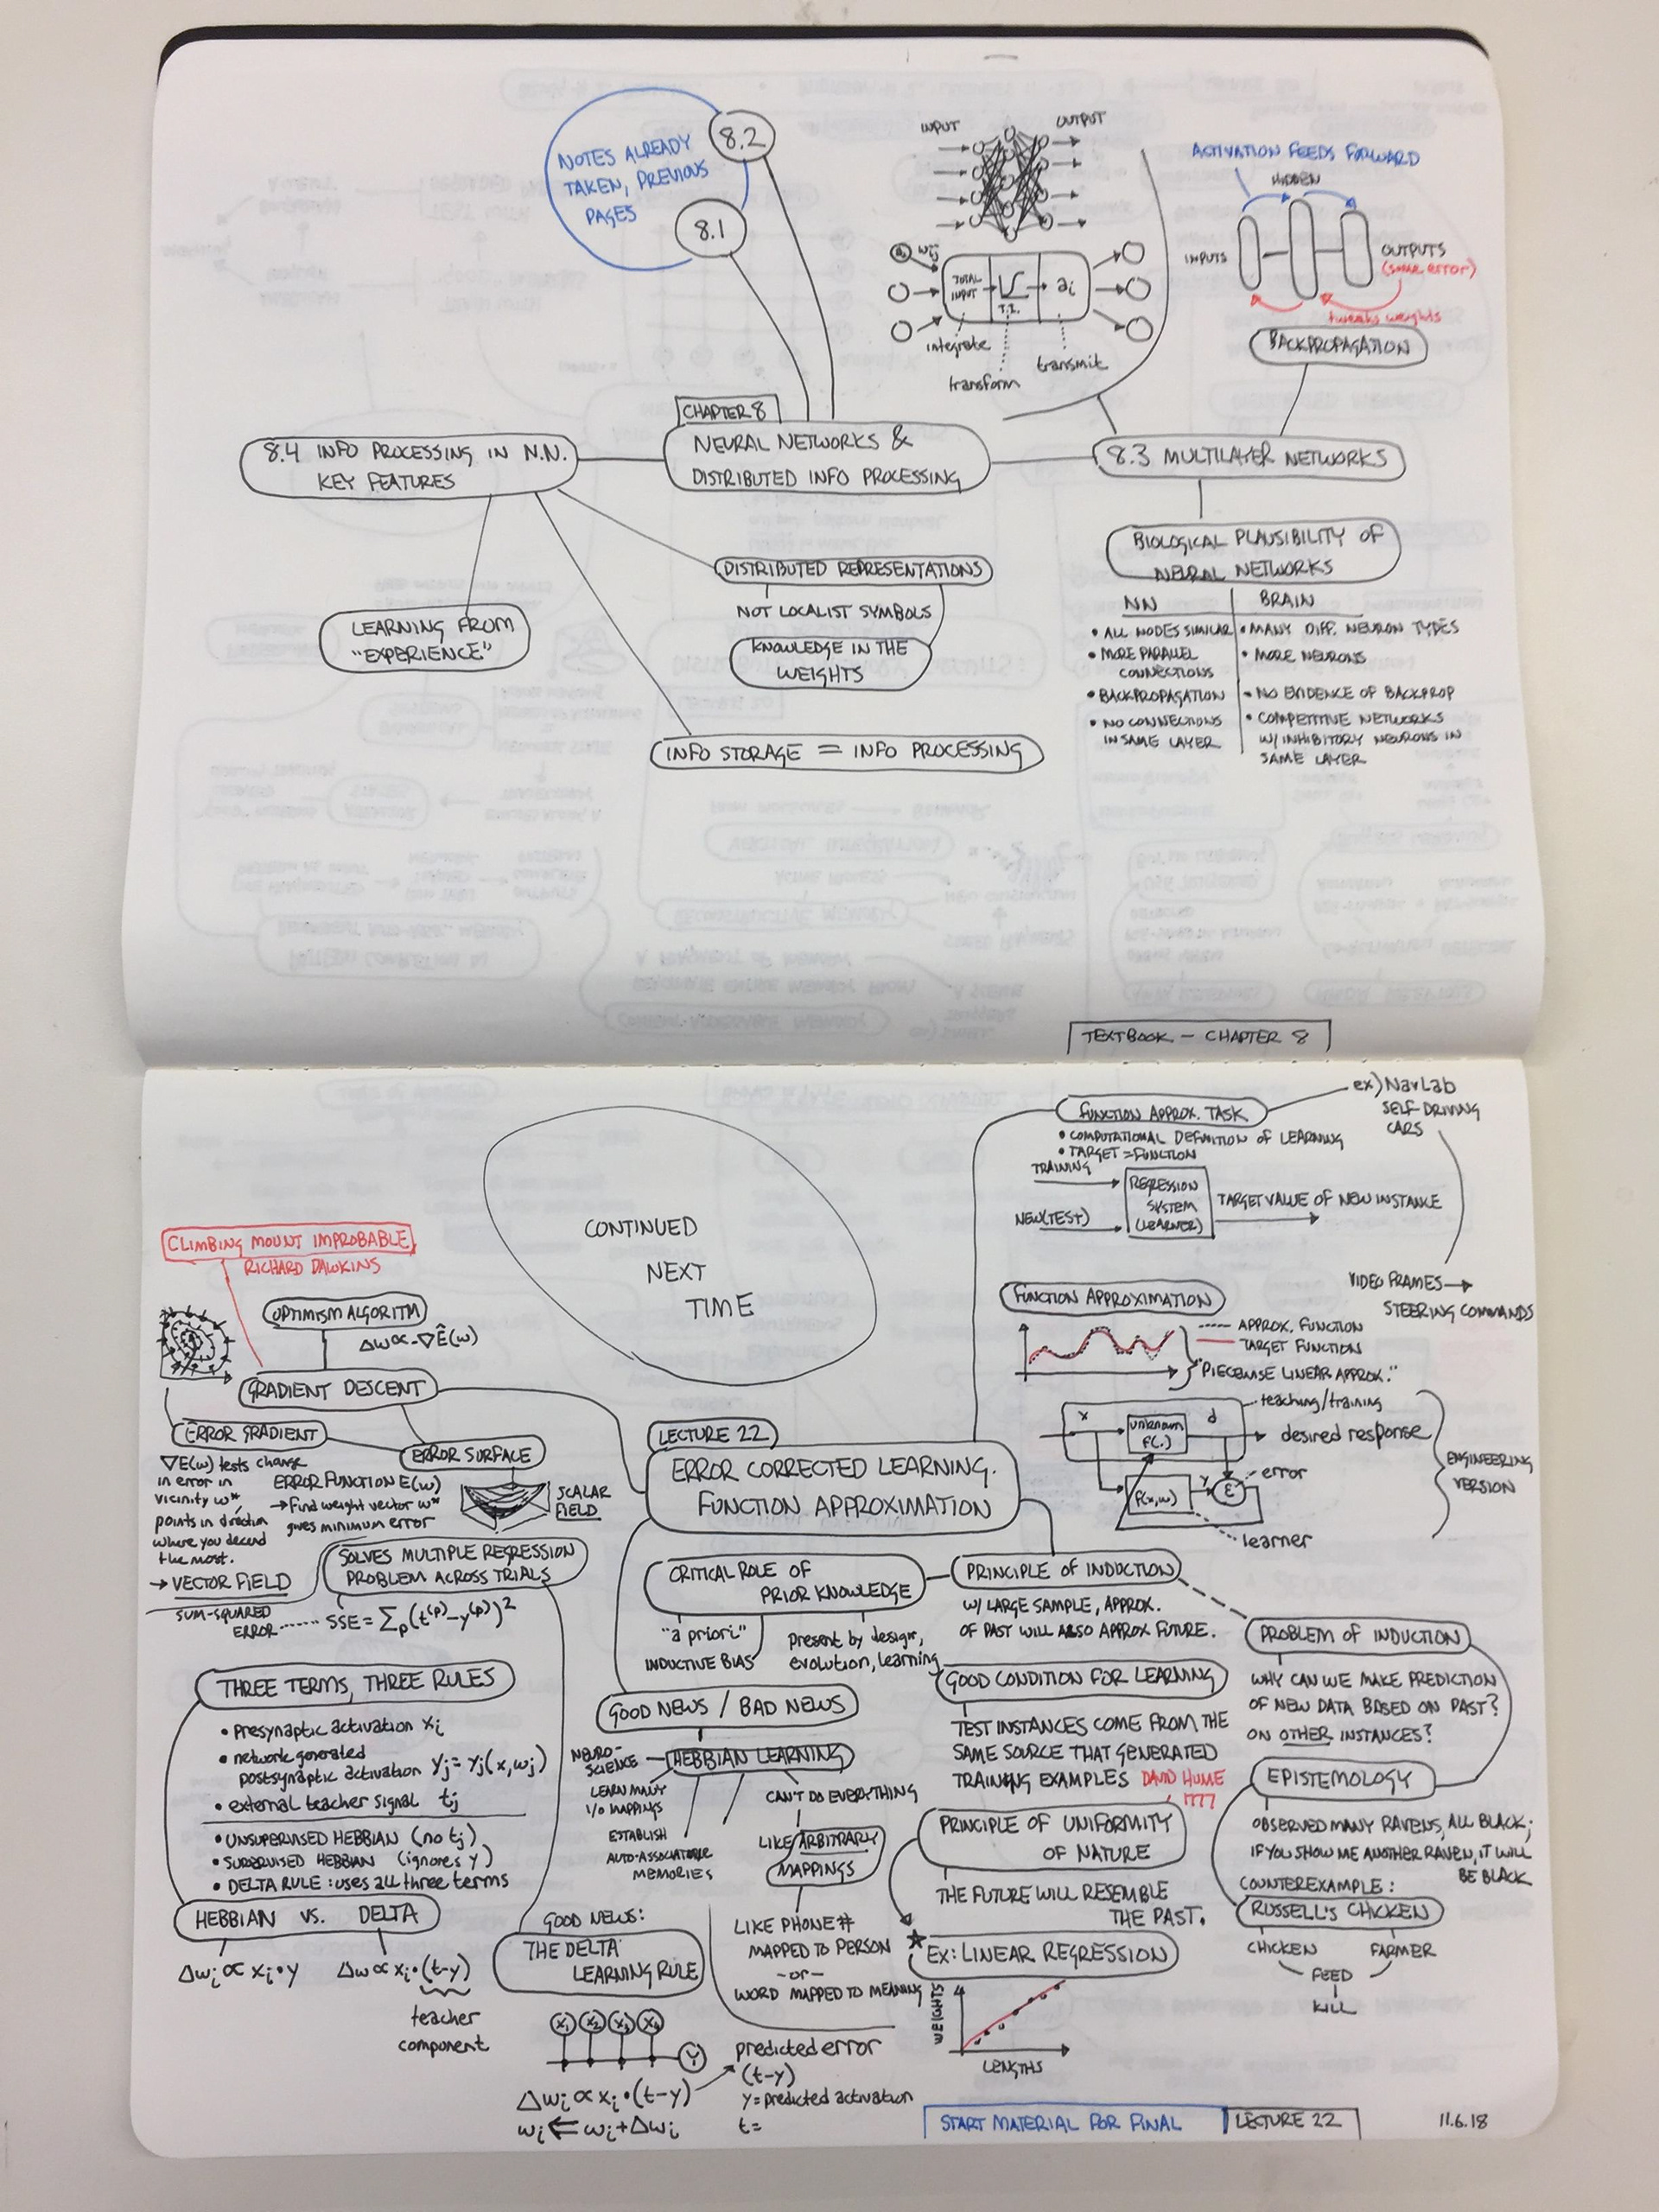 8.2
NOTES ALREADY
TAKEN, PREVIOUS
PAGES
8.1
INPUT
OUTPUT
wij
TOTAL
INPUT
T.I.
ai
integrate
transform
transmit
ACTIVATION FEEDS FORWARD
HIDDEN
INPUTS
OUTPUTS
(some error)
tweaks weights
BACKPROPAGATION
CHAPTER 8
NEURAL NETWORKS &
DISTRIBUTED INFO PROCESSING
8.4 INFO PROCESSING IN N.N.
KEY FEATURES
8.3 MULTILAYER NETWORKS
DISTRIBUTED REPRESENTATIONS
NOT LOCALIST SYMBOLS
KNOWLEDGE IN THE
WEIGHTS
LEARNING FROM
"EXPERIENCE"
INFO STORAGE = INFO PROCESSING
BIOLOGICAL PLAUSIBILITY OF
NEURAL NETWORKS
NN
• ALL NODES SIMILAR
• MORE PARALLEL
CONNECTIONS
• BACKPROPAGATION
• NO CONNECTIONS
IN SAME LAYER
BRAIN
• MANY DIFF. NEURON TYPES
• MORE NEURONS
• NO EVIDENCE OF BACKPROP
• COMPETITIVE NETWORKS
W/ INHIBITORY NEURONS IN
SAME LAYER
TEXTBOOK – CHAPTER 8
FUNCTION APPROX. TASK
ex) NavLab
SELF-DRIVING
CARS
• COMPUTATIONAL DEFINITION OF LEARNING
• TARGET = FUNCTION
TRAINING
NEW (TEST)
REGRESSION
SYSTEM
(LEARNER)
TARGET VALUE OF NEW INSTANCE
VIDEO FRAMES →
STEERING COMMANDS
CONTINUED
NEXT
TIME
CLIMBING MOUNT IMPROBABLE
RICHARD DAWKINS
OPTIMISM ALGORITM
Δw∝-∇Ê(w)
GRADIENT DESCENT
ERROR GRADIENT
∇E(w) tests change
in error in
vicinity w*,
points in direction
where you decend
the most.
→ VECTOR FIELD
ERROR SURFACE
ERROR FUNCTION E(w)
→ Find weight vector w*
gives minimum error
SCALAR
FIELD
SOLVES MULTIPLE REGRESSION
PROBLEM ACROSS TRIALS
SUM-SQUARED
ERROR
SSE = Σp (t(p) – y(p))²
FUNCTION APPROXIMATION
APPROX. FUNCTION
TARGET FUNCTION
"PIECEWISE LINEAR APPROX."
x
unknown
f(.)
d
teaching/training
desired response
f(x,w)
y
Ɛ
error
learner
ENGINEERING
VERSION
LECTURE 22
ERROR CORRECTED LEARNING.
FUNCTION APPROXIMATION
CRITICAL ROLE OF
PRIOR KNOWLEDGE
"a priori"
INDUCTIVE BIAS
present by design,
evolution, learning
PRINCIPLE OF INDUCTION
W/ LARGE SAMPLE, APPROX.
OF PAST WILL ALSO APPROX FUTURE.
PROBLEM OF INDUCTION
WHY CAN WE MAKE PREDICTION
OF NEW DATA BASED ON PAST?
ON OTHER INSTANCES?
GOOD CONDITION FOR LEARNING
TEST INSTANCES COME FROM THE
SAME SOURCE THAT GENERATED
TRAINING EXAMPLES
DAVID HUME
1777
PRINCIPLE OF UNIFORMITY
OF NATURE
THE FUTURE WILL RESEMBLE
THE PAST.
EPISTEMOLOGY
OBSERVED MANY RAVENS, ALL BLACK;
IF YOU SHOW ME ANOTHER RAVEN, IT WILL
BE BLACK
COUNTEREXAMPLE:
RUSSELL'S CHICKEN
CHICKEN
FARMER
FEED
KILL
EX: LINEAR REGRESSION
WEIGHTS
LENGTHS
GOOD NEWS / BAD NEWS
NEURO-
SCIENCE
HEBBIAN LEARNING
LEARN MANY
I/O MAPPINGS
ESTABLISH
AUTO-ASSOCIATIVE
MEMORIES
CAN'T DO EVERYTHING
LIKE ARBITRARY
MAPPINGS
LIKE PHONE #
MAPPED TO PERSON
-or-
WORD MAPPED TO MEANING
THREE TERMS, THREE RULES
• presynaptic activation xi
• network generated
postsynaptic activation yj = yj(x, wj)
• external teacher signal tj
• UNSUPERVISED HEBBIAN (no tj)
• SUPERVISED HEBBIAN (ignores y)
• DELTA RULE: uses all three terms
HEBBIAN VS. DELTA
Δwi ∝ xi • y
Δw ∝ xi • (t-y)
teacher
component
GOOD NEWS:
THE DELTA
LEARNING RULE
x1 x2 x3 x4
y
Δwi ∝ xi • (t-y)
wi ⇐ wi + Δwi
predicted error
(t-y)
y = predicted activation
t =
START MATERIAL FOR FINAL
LECTURE 22
11.6.18